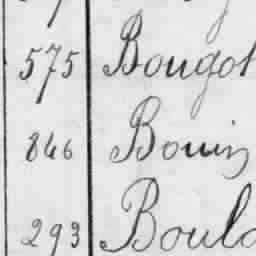 575 Bougot
846 Bouin
293 Boula